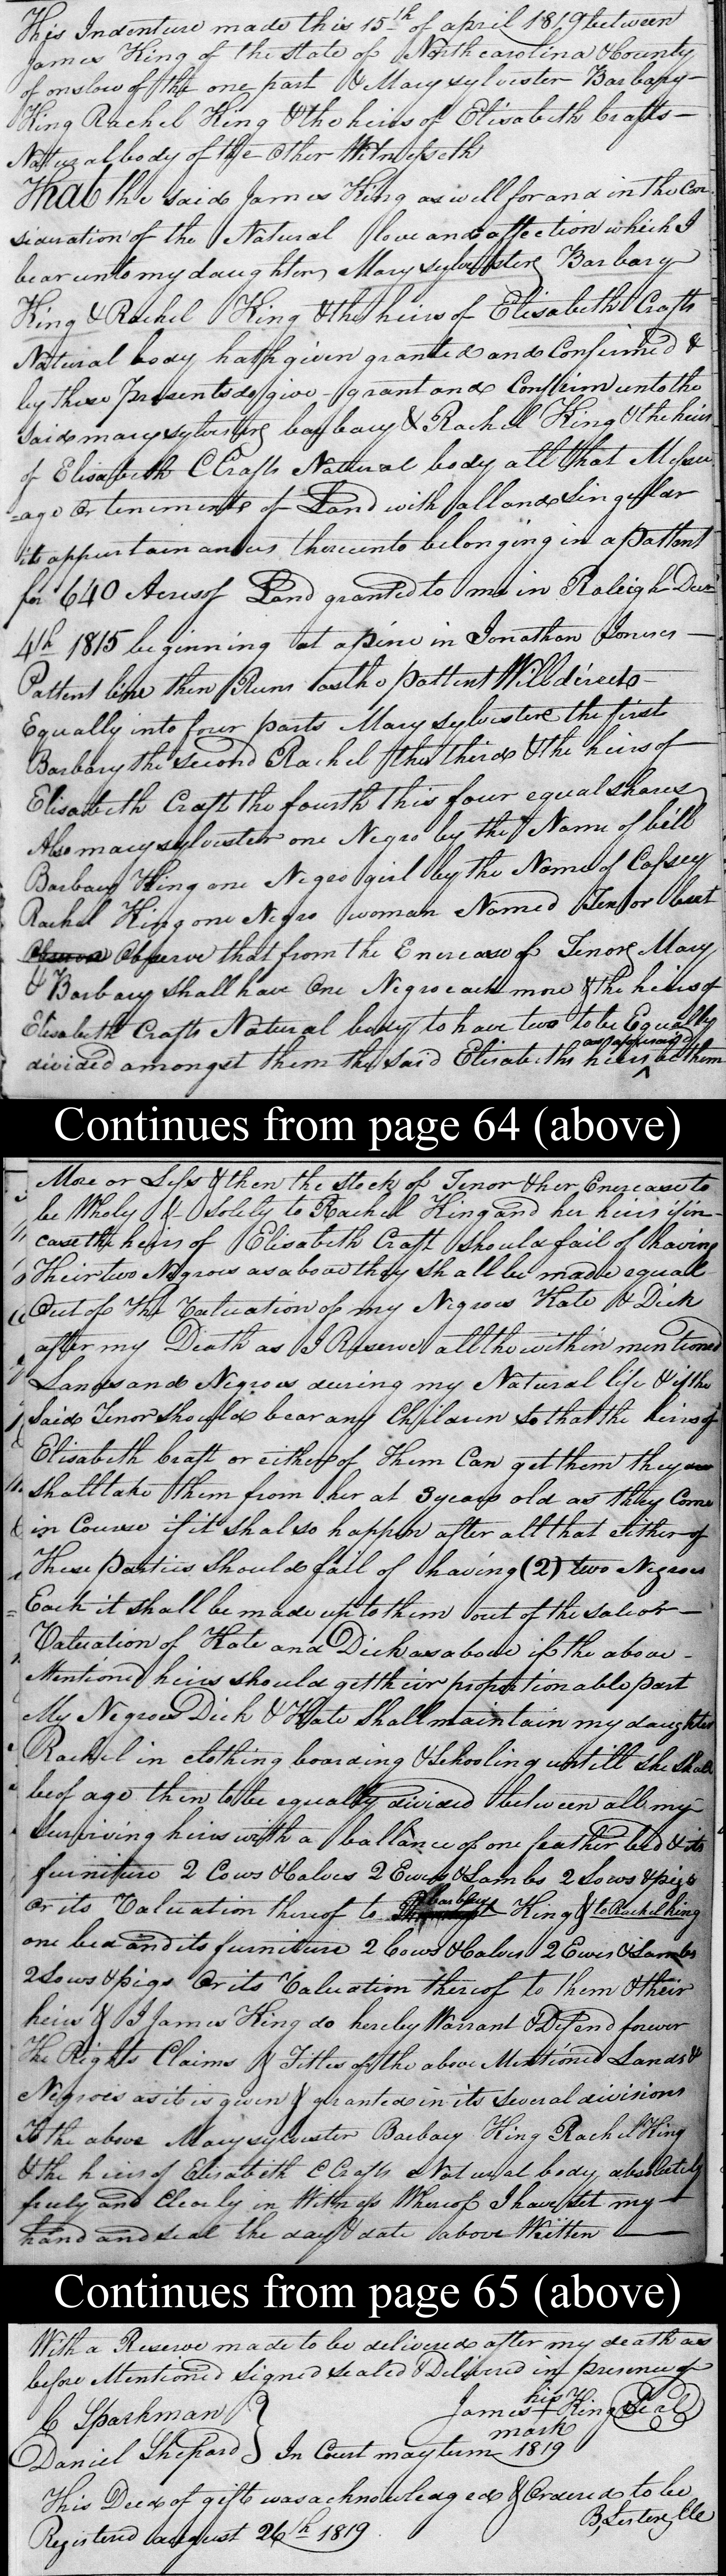 This Indenture made this 15th of april 1819 between
James King of the state of North carolina & County
of onslow of the one part & Mary sylvester Barbary
King Rachel King & the heirs of Elisabeth Crafts
Natural body of the other Witnesseth
That the said James King as well for and in the Con
sideration of the Natural love and affection which I
bear unto my daughters Mary sylvester Barbary
King & Rachel King & the heirs of Elisabeth Crafts
Natural body hath given granted and Confirmed &
by these Presents do give grant and Confirm unto the
said mary sylvester barbary & Rachel King & the heirs
of Elisabeth C Crafts Natural body all that Messu
=age or teniments of Land with all and Singular
its appurtainances thereunto belonging in a pattent
for 640 Acres of Land granted to me in Raleigh Decr
4th 1815 beginning at a pine in Jonathan Joneses
Pattent line then Runs as the pattent Will directs
Equally into four parts Mary sylvester the first
Barbary the second Rachel the third & the heirs of
Elisabeth Craft the fourth this four equal shares
Also mary sylvester one Negro by the Name of bill
Barbary King one Negro girl by the Name of Cassey
Rachel King one Negro woman Named Tenor but
Observe that from the Encrease of Tenor Mary
& Barbary shall have One Negro each more & the heirs of
Elisabeth Crafts Natural body to have two to be Equally
divided amongst them the said Elisabeths heirs as aforesaid be them
Continues from page 64 (above)
More or Less & then the stock of Tenor & her Encrease to
be Wholy & Solely to Rachel King and her heirs if in
case the heirs of Elisabeth Craft should fail of having
Their two Negroes as above they shall be made equal
Out of The Valuation of my Negroes Kate & Dick
after my Death as I Reserve all the within mentioned
Lands and Negroes during my Natural life & if the
said Tenor should bear any Children so that the heirs of
Elisabeth Craft or either of Them Can get them they
shall take them from her at 3 years old as they Come
in Course if it shal so happen after all that either of
These parties should fail of having (2) two Negroes
Each it shall be made up to them out of the sale or
Valuation of Kate and Dick as above if the above
Mentioned heirs should get their proportionable part
My Negroes Dick & Kate shall maintain my daughter
Rachel in clothing boarding & Schooling untill she shall
be of age then to be equally divided between all my
surviving heirs with a ballance of one feather bed & its
furniture 2 Cows & Calves 2 Ewes & Lambs 2 Sows & pigs
or its Valuation thereof to barbary King & to Rachel King
one bed and its furniture 2 Cows & Calves 2 Ewes & Lambs
2 Sows & pigs or its Valuation thereof to them & their
heirs & I James King do hereby Warrant & Defend forever
The Rights Claims & Titles of the above Mentioned Lands &
Negroes as it is given & granted in its several divisions
To the above Mary sylvester Barbary King Rachel King
& the heirs of Elisabeth C Crafts Natural body absolutely
freely and Clearly in Witness Whereof I have set my
hand and seal the day & date above Written
Continues from page 65 (above)
With a Reserve made to be delivered after my death as
before Mentioned signed sealed & Delivered in presence of
C Sparkman James his mark King Seal
Daniel Shepard In Court may term 1819
This Deed of gift was acknowledged & Ordered to be
Registered august 26th 1819. B, Lester, Clk